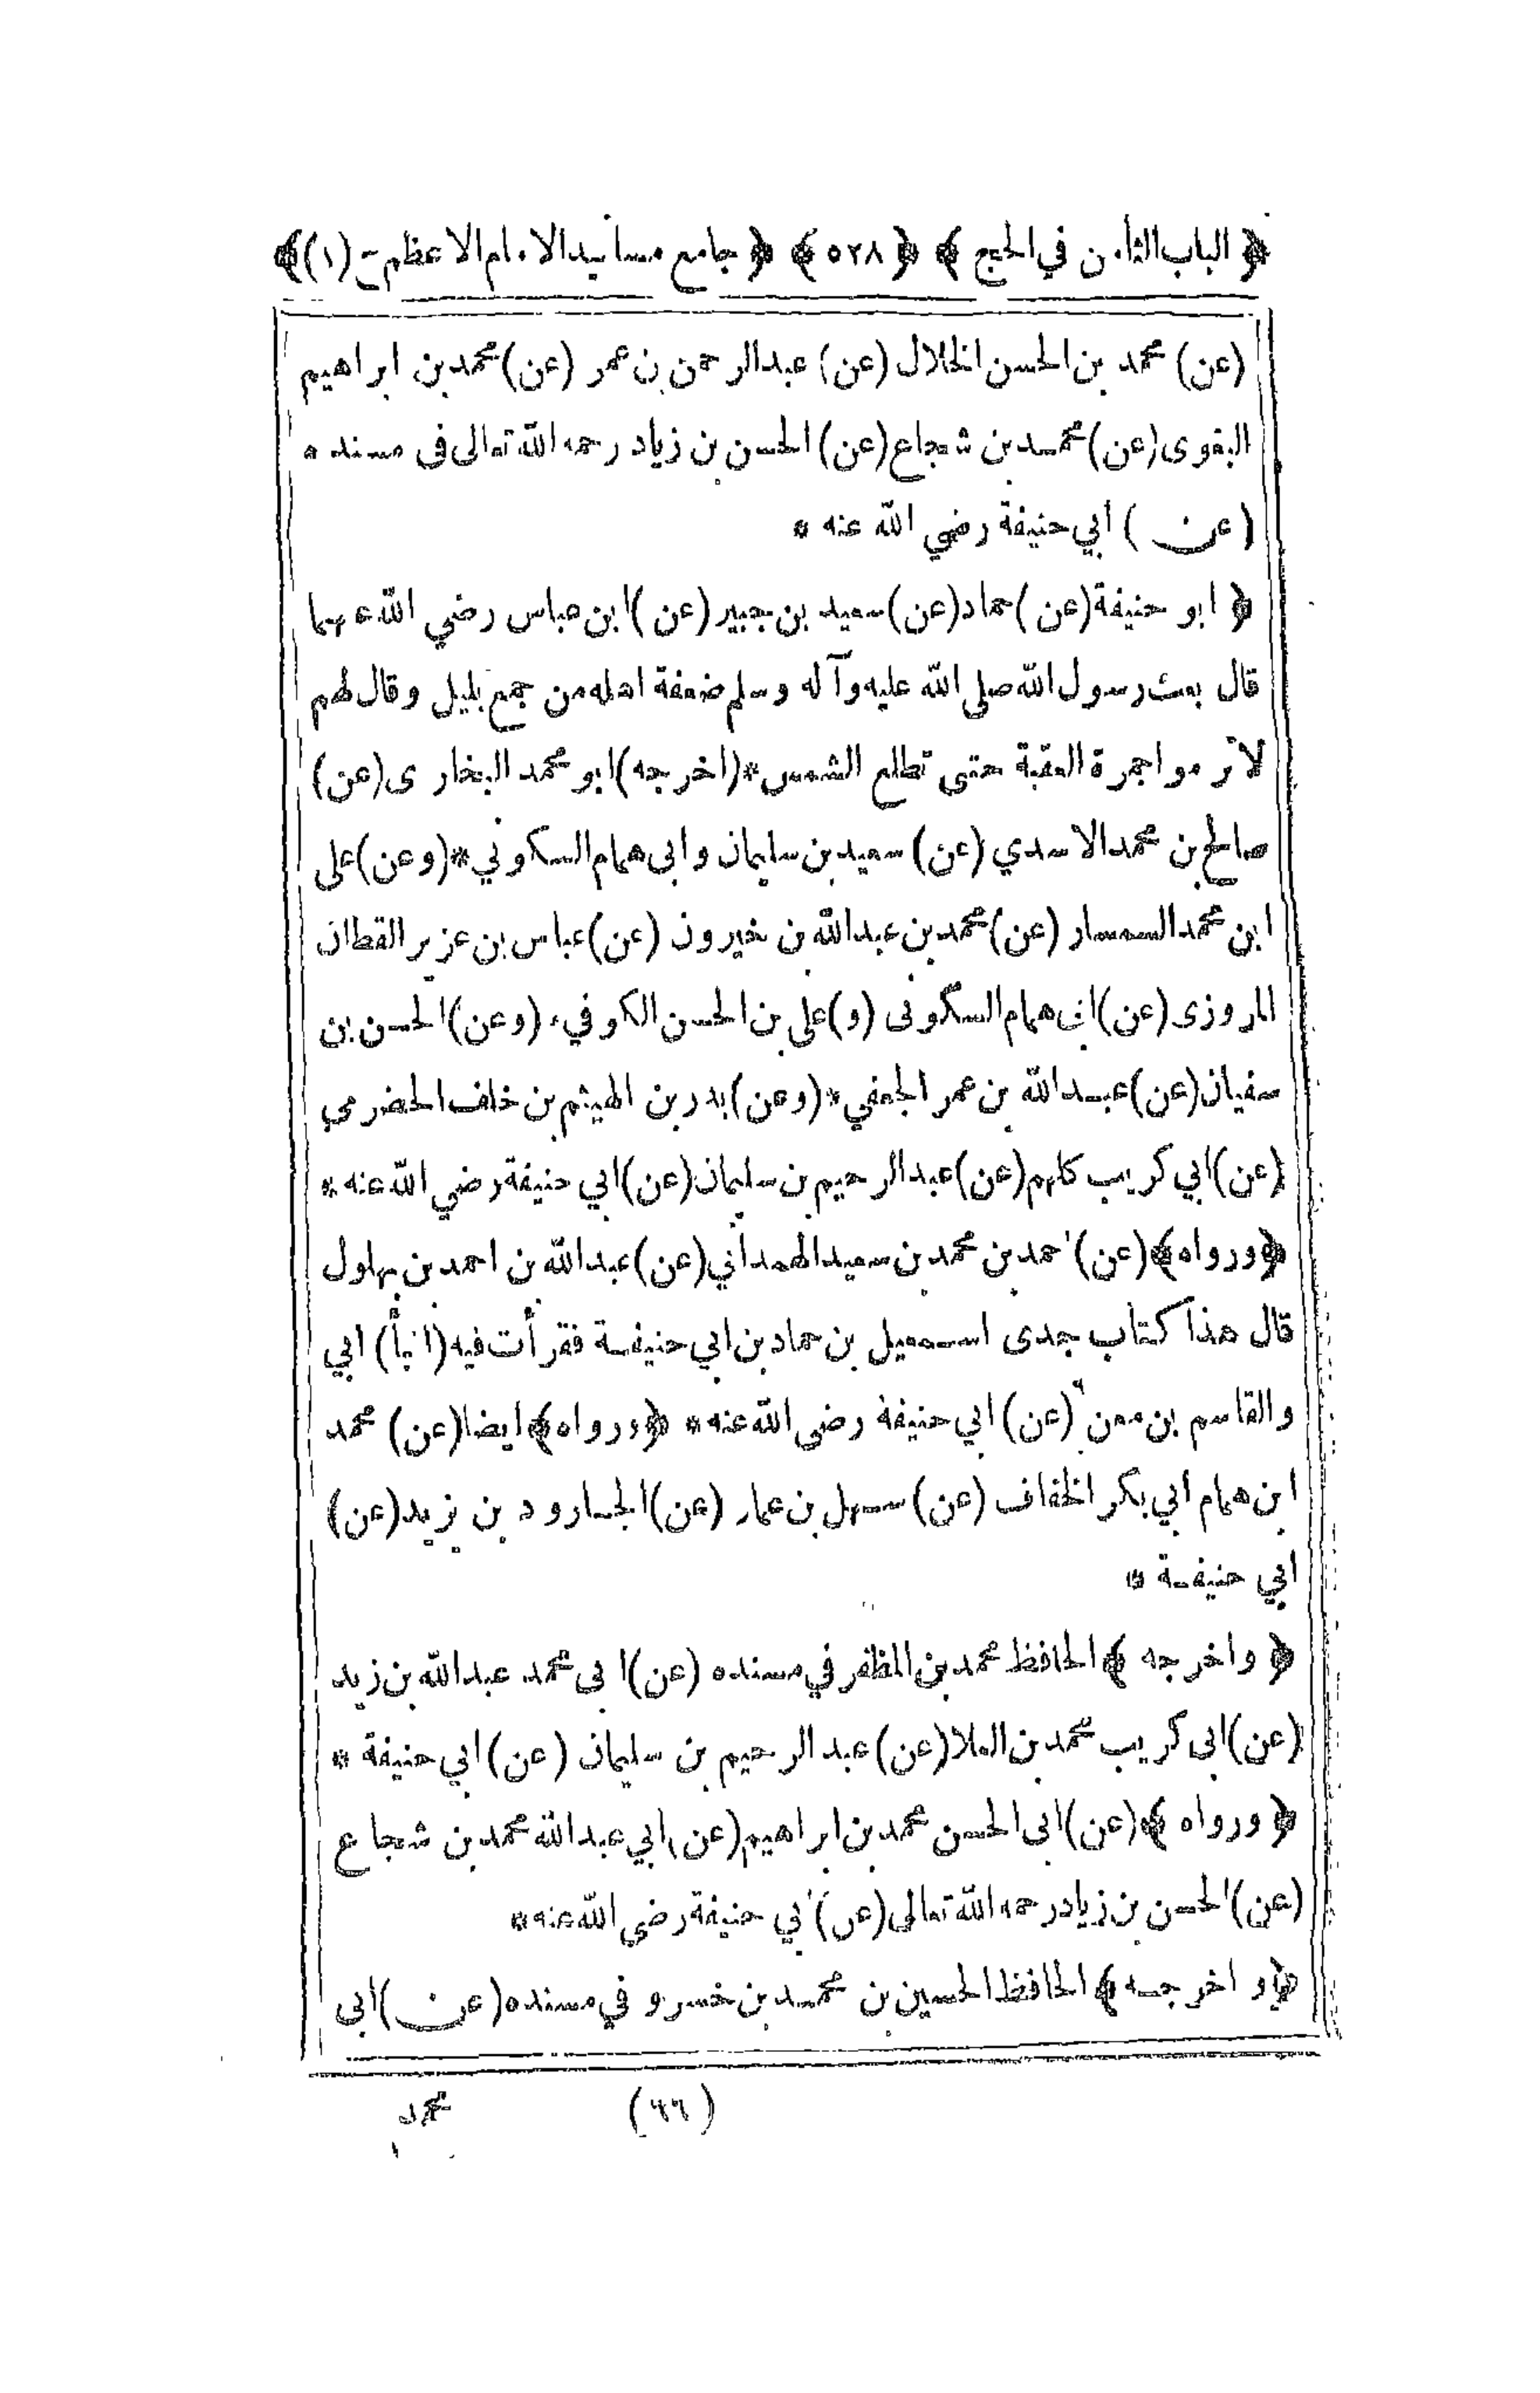 ﴿ الباب الثامن في الحج ﴾ ﴿ ٥٢٨ ﴾ ﴿ جامع مسانيد الامام الاعظم ج (١) ﴾
(عن) محمد بن الحسن الخلال (عن) عبد الرحمن بن عمر (عن) محمد بن ابراهيم
البغوى (عن) محمد بن شجاع (عن) الحسن بن زياد رحمه الله تعالى فى مسنده *
(عن) أبي حنيفة رضي الله عنه *
﴿ ابو حنيفة (عن) حماد (عن) سعيد بن جبير (عن) ابن عباس رضي الله عنهما
قال بعث رسول الله صلى الله عليه وآله وسلم ضعفة اهله من جمع بليل وقال لهم
لا ترموا جمرة العقبة حتى تطلع الشمس * (اخرجه) ابو محمد البخارى (عن)
صالح بن محمد الاسدي (عن) سعيد بن سليمان وابى همام السكوني * (وعن) على
ابن محمد السمسار (عن) محمد بن عبد الله بن خيرون (عن) عباس بن عزير القطان
المروزى (عن) ابى همام السكونى (و) على بن الحسن الكوفي * (وعن) الحسن بن
سفيان (عن) عبد الله بن عمر الجعفي * (وعن) بدر بن الهيثم بن خلف الحضرمي
(عن) ابي كريب كلهم (عن) عبد الرحيم بن سليمان (عن) ابي حنيفة رضي الله عنه *
﴿ ورواه ﴾ (عن) احمد بن محمد بن سعيد الهمداني (عن) عبد الله بن احمد بن بهلول
قال هذا كتاب جدى اسمعيل بن حماد بن ابي حنيفة فقرأت فيه (انبأ) ابي
والقاسم بن معن (عن) ابي حنيفة رضي الله عنه * ﴿ ورواه ﴾ ايضا (عن) محمد
ابن همام ابي بكر الخفاف (عن) سهل بن عمار (عن) الجارود بن يزيد (عن)
ابي حنيفة *
﴿ واخرجه ﴾ الحافظ محمد بن المظفر في مسنده (عن) ابى محمد عبد الله بن زيد
(عن) ابى كريب محمد بن العلا (عن) عبد الرحيم بن سليمان (عن) ابي حنيفة *
﴿ ورواه ﴾ (عن) ابى الحسن محمد بن ابراهيم (عن) ابي عبد الله محمد بن شجاع
(عن) الحسن بن زياد رحمه الله تعالى (عن) ابي حنيفة رضي الله عنه *
﴿ واخرجه ﴾ الحافظ الحسين بن محمد بن خسرو في مسنده (عن) ابى
(٦٦) محمد